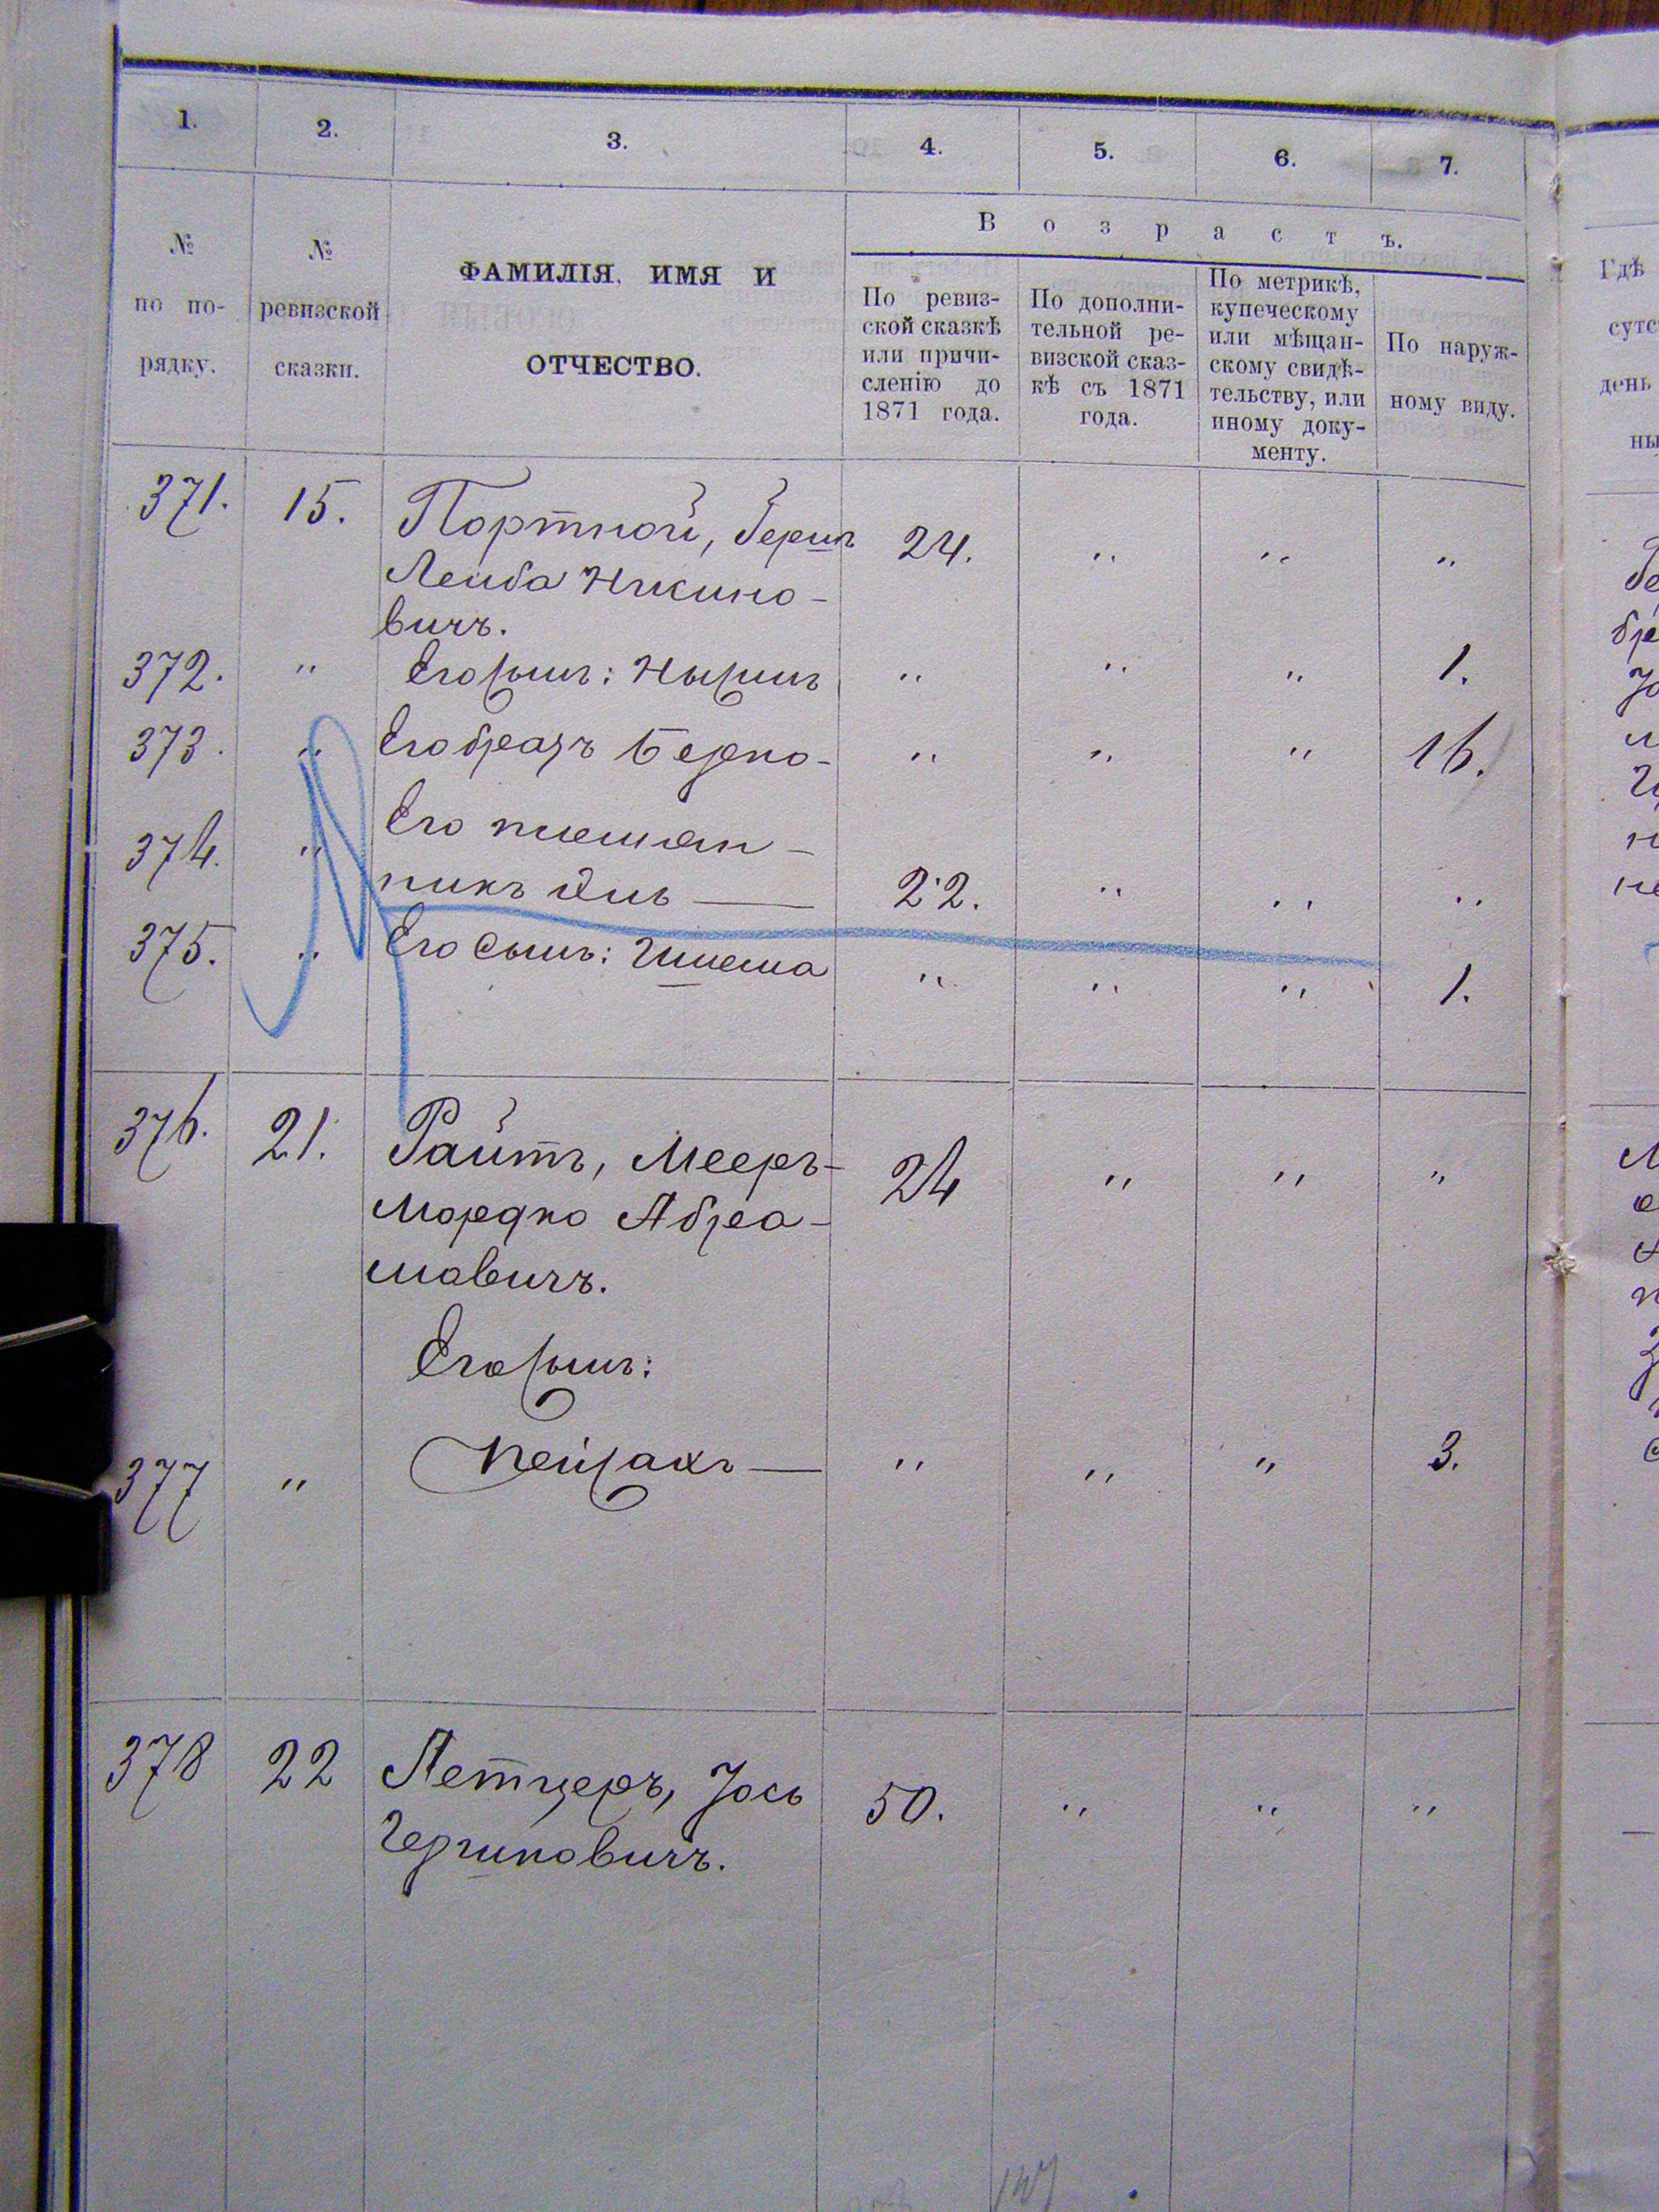 1. 2. 3. 4. 5. 6. 7.
В о з р а с т ъ.
№ по по- рядку.
№ ревизской сказки.
ФАМИЛІЯ, ИМЯ И
ОТЧЕСТВО.
По ревиз-
ской сказкѣ
или причи-
сленію до
1871 года.
По дополни-
тельной ре-
визской сказ-
кѣ съ 1871
года.
По метрикѣ,
купеческому
или мѣщан-
скому свидѣ-
тельству, или
иному доку-
менту.
По наруж-
ному виду.
371. 15. Портной, Берлъ 24. " " "
Лейба
вичъ.
372. " Его сынъ: " " 1.
373. " Его братъ Берко- " " " 16.
Его племян-
374. " никъ 22. " " "
375. " Его сынъ: " " " 1.
376. 21. Райтъ, Мееръ- 24 " " "
Мордко Абра-
мовичъ.
Его сынъ:
377 " Пейсахъ — " " " 3.
378 22 Летцеръ, Іось 50. " " "
Гершковичъ.
Гдѣ
сутс
день
ны